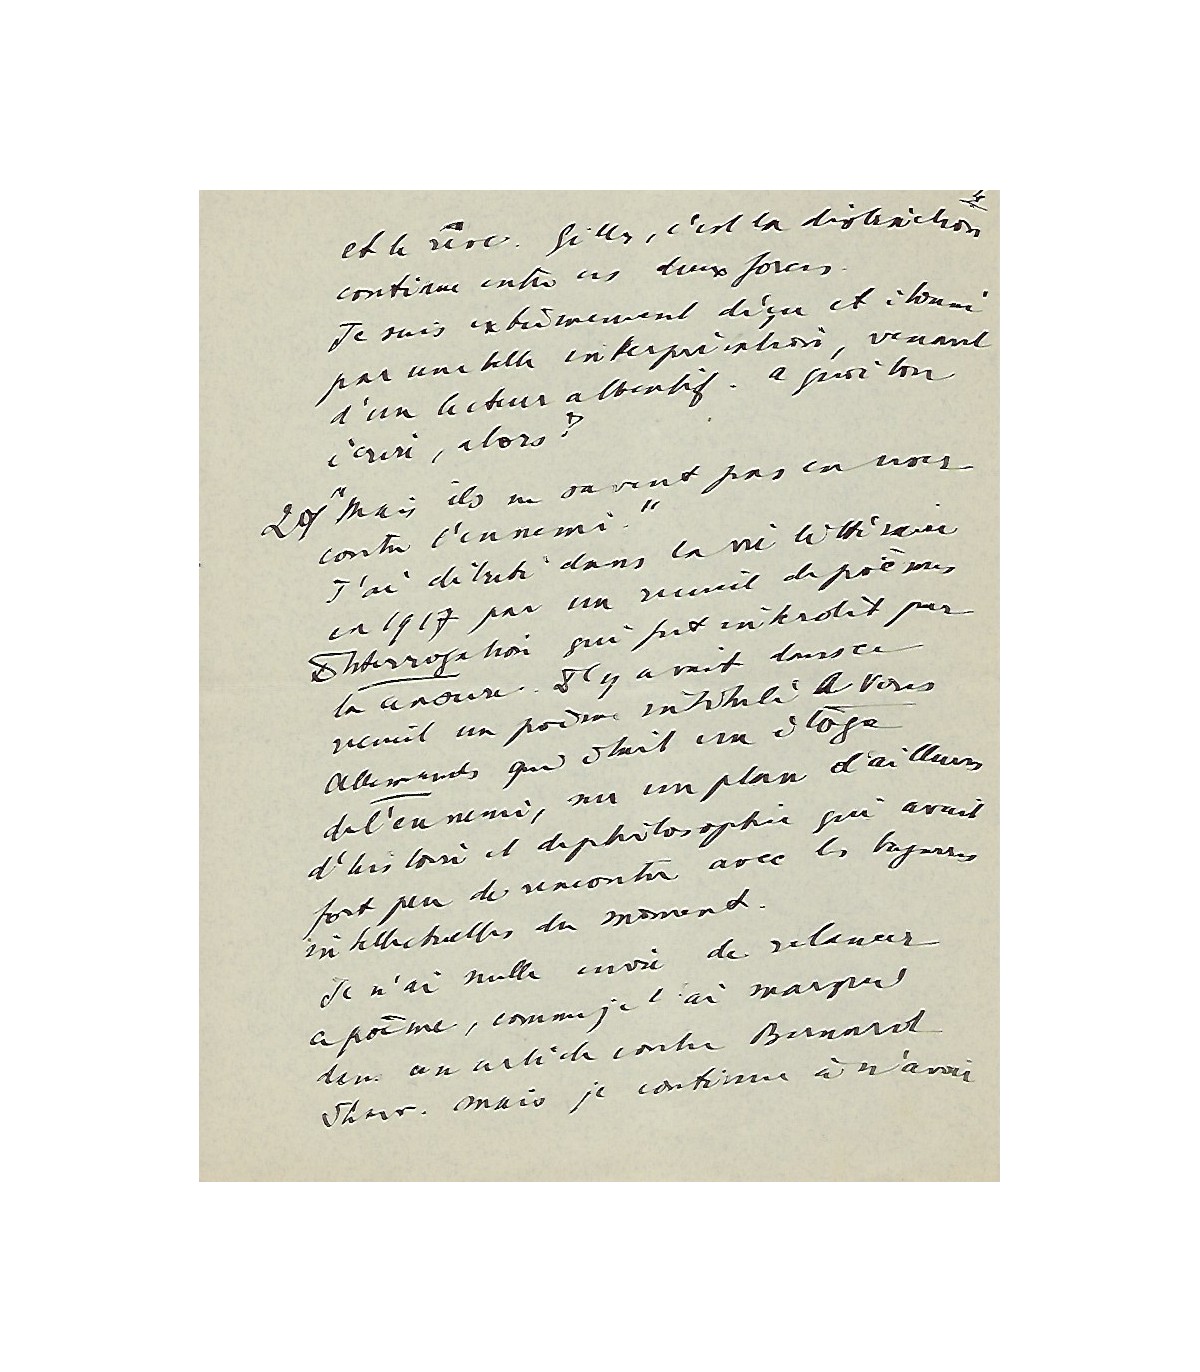 4
et le rêve. Gilles, c'est la distinction
continue entre ces deux forces.
Je suis extrêmement déçu et étonné
par une telle interprétation, venant
d'un lecteur attentif. A quoi bon
écrire, alors?
2°/ "Mais ils ne savent pas en
contre l'ennemi."
J'ai débuté dans la vie littéraire
en 1917 par un recueil de poèmes
Interrogation qui fut interdit par
la censure. Il y avait dans ce
recueil un poème intitulé A vous
Allemands qui était un éloge
de l'ennemi, sur un plan d'ailleurs
d'histoire et de philosophie qui avait
fort peu de rencontre avec les bagarres
intellectuelles du moment.
Je n'ai nulle envie de relancer
ce poème, comme je l'ai marqué
dans un article contre Bernard
Shaw. Mais je continue à n'avoir